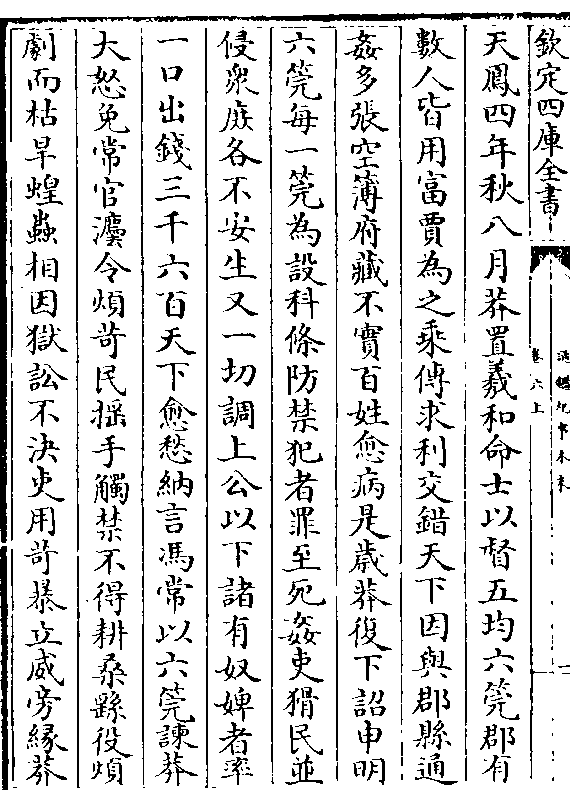 欽定四庫全書
通鑑紀事本末
卷六上
天鳳四年秋八月莽置羲和命士以督五均六筦郡有
數人皆用富賈為之乘傳求利交錯天下因與郡縣通
姦多張空簿府藏不實百姓愈病是歲莽復下詔申明
六筦每一筦為設科條防禁犯者罪至死姦吏猾民並
侵衆庶各不安生又一切調上公以下諸有奴婢者率
一口出錢三千六百天下愈愁納言馮常以六筦諫莽
大怒免常官灋令煩苛民揺手觸禁不得耕桑繇役煩
劇而枯旱蝗蟲相因獄訟不決吏用苛暴立威旁緣莽